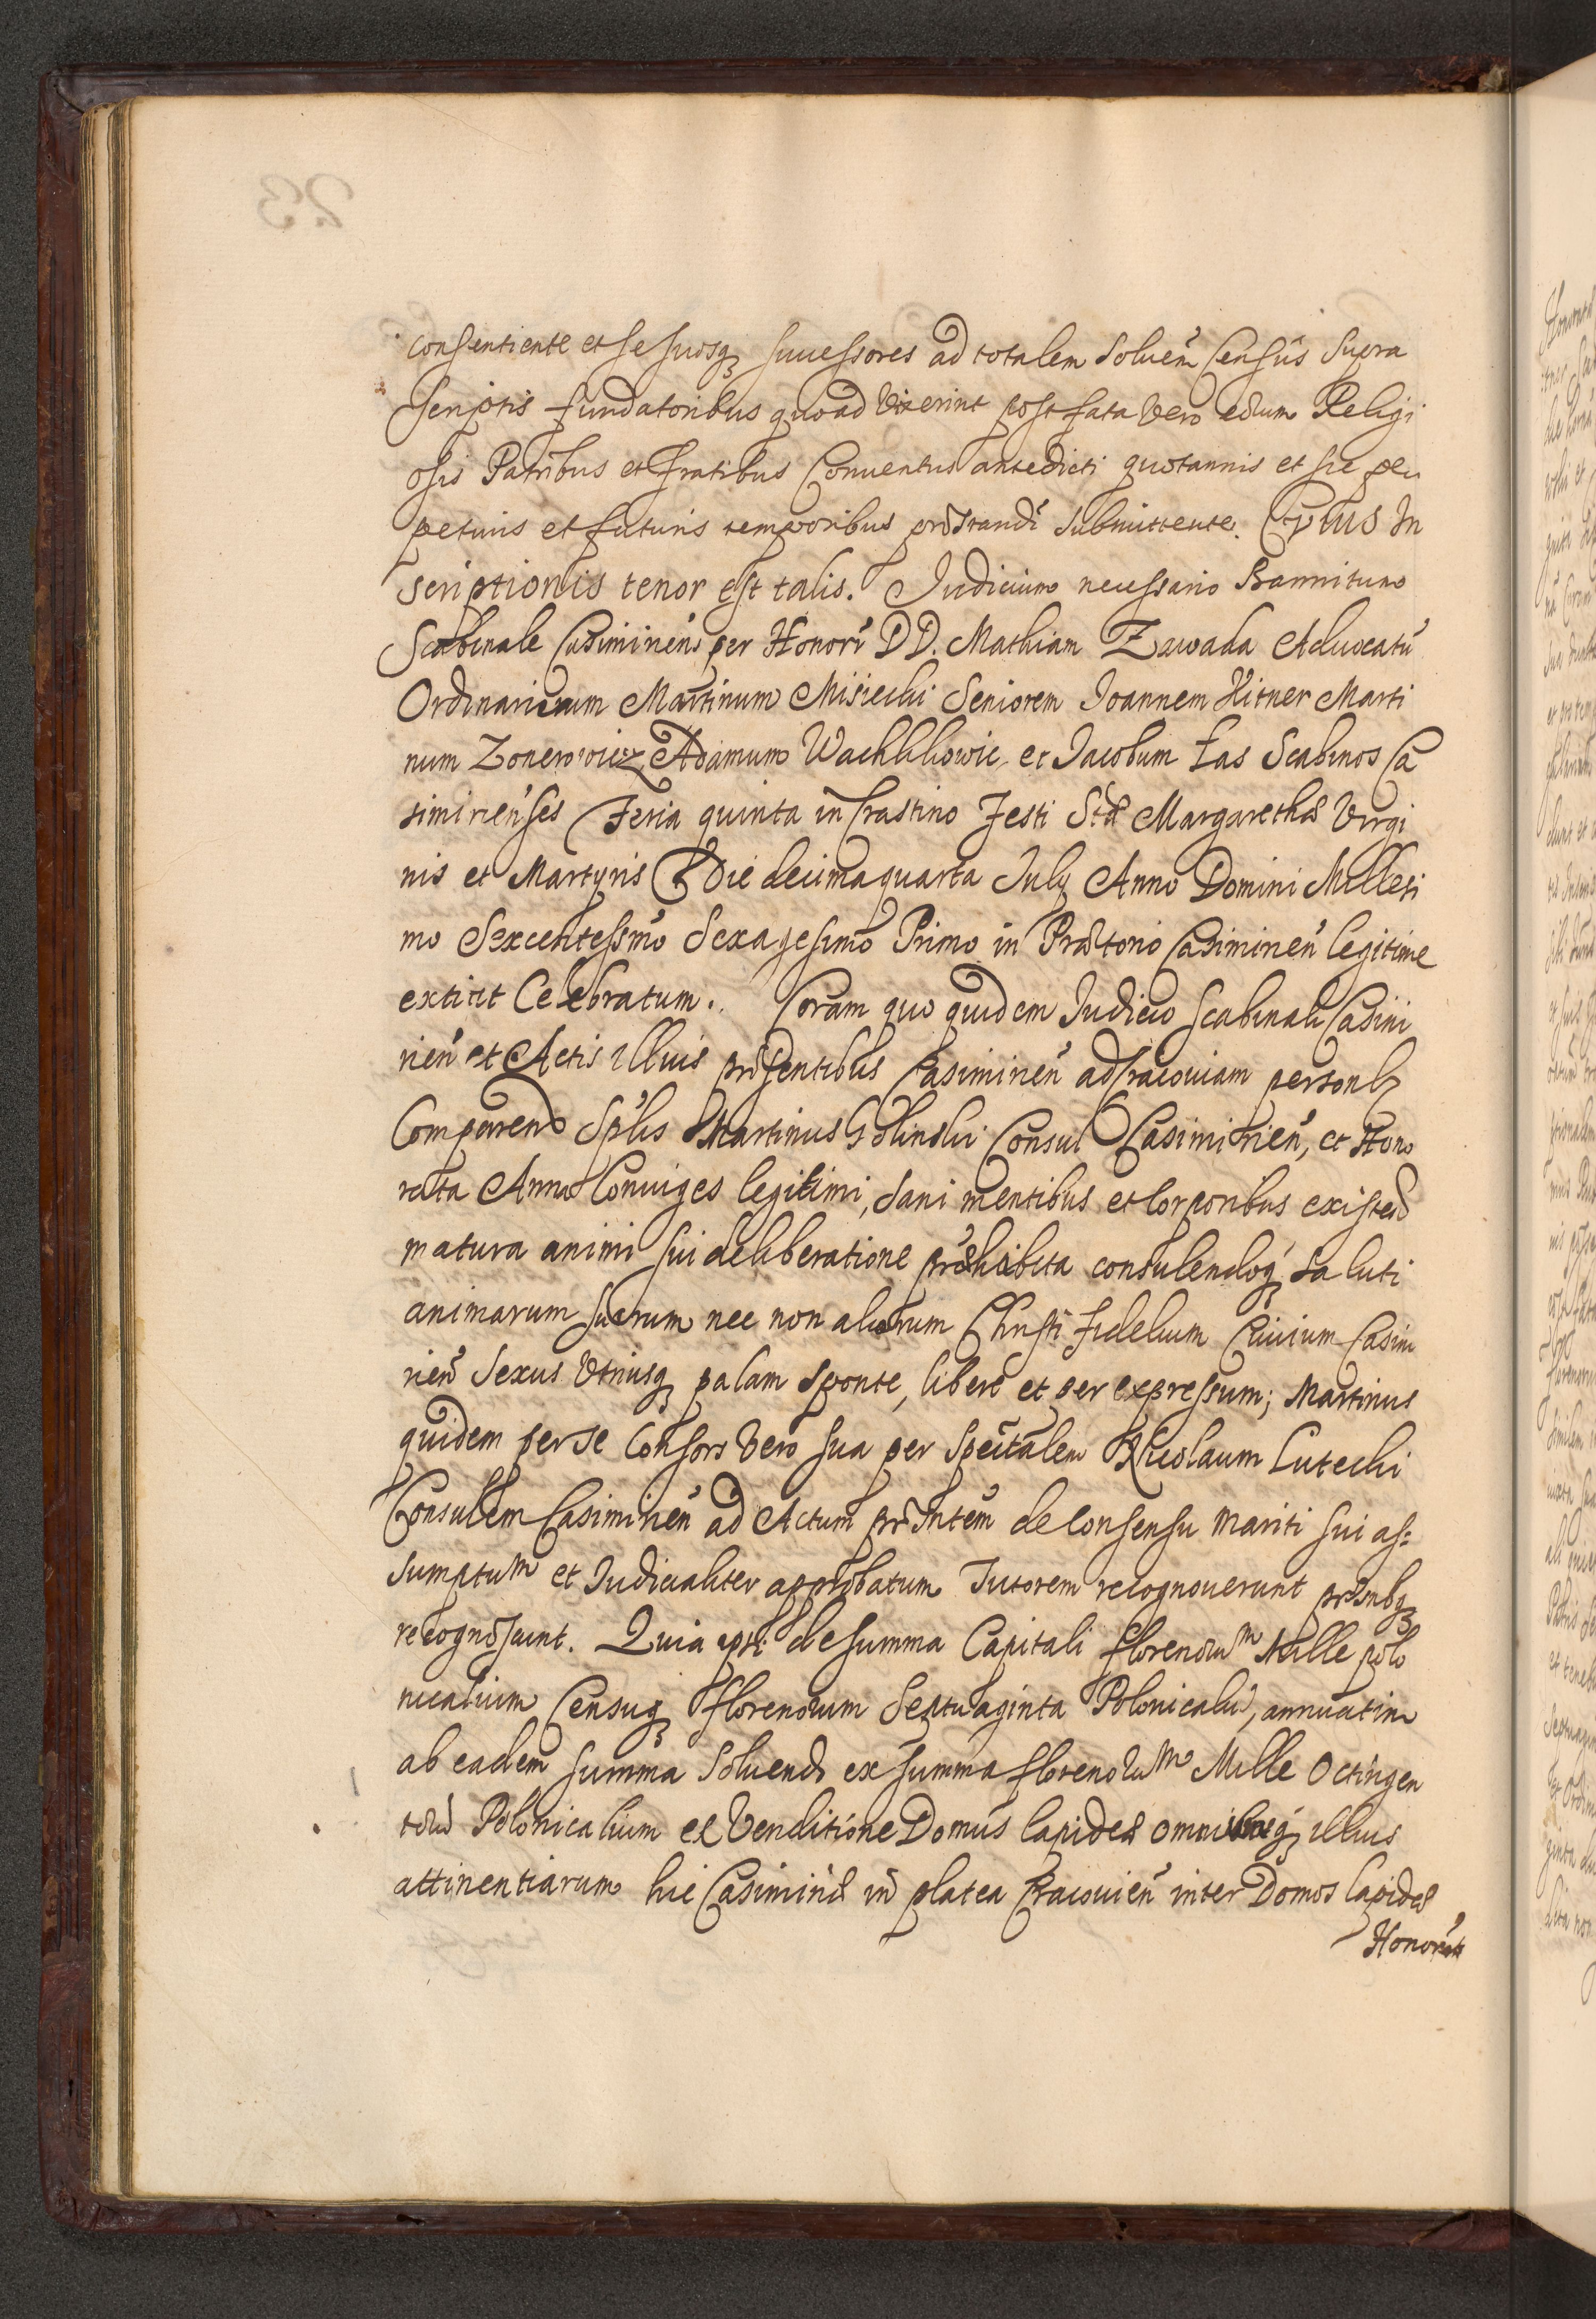 consentiente et se suosq₃ successores ad totalem soluẽn Census supra
scriptis fundatoribus quoad vixerint post fata vero eorum Religi
osis Patribus et fratribus Conuentus antedicti quotannis et sic per
petuis et futuris temporibus præstandi submittente. Cuius In
scriptionis tenor est talis. Judicium necessario Bannitum
Scabinale Casimirien̄s per Honor̄ DD. Mathiam Zawada Aduocatū
Ordinarium Martinum Misiecki Seniorem Joannem Hitner Marti
num Zonerowicz Adamum Wachlikowic et Jacobum Łas Scabinos Ca
simirienses Feria quinta in Crastino Festi Stæ Margarethæ Virgi
nis et Martyris Die decima quarta July Anno Domini Millesi
mo Sexcentessimo Sexagesimo Primo in Prætorio Casimirien̄ legitime
extitit Celebratum. Coram quo quidem Judicio Scabinali Casimi
rien̄ et Actis illius præsentibus Casimirien̄ ad Cracouiam personlr
Comparen̄ Splis Martinus Golinski Consul Casimirien̄, et Hono
rata Anna Coniuges legitimi, sani mentibus et corporibus existen̄
matura animi sui deliberatione præhabita consulendoq₃ saluti
animarum suarum nec non aliorum Christi fidelium Ciuium Casimi
rien̄ sexus vtriusq₃ palam sponte, libere et per expressum; Martinus
quidem per se Consors vero sua per Spectalem Nicolaum Lutecki
Consulem Casimirien̄ ad Actum præsntem de consensu mariti sui as:
sumptum et Judicialiter approbatum Tutorem recognouerunt præsnbq₃
recognoscunt. Quia ipsi de summa Capitali florenorum Mille polo
nicalium Censuq₃ florenorum Septuaginta Polonicaliū, annuatim
ab eadem summa soluendo ex summa florenorum Mille Octingen
torū Polonicalium ex Venditione Domus lapideæ omniumq₃ illius
attinentiarum hic Casimiriæ in platea Cracouien̄ inter Domos lapideas
Honorat